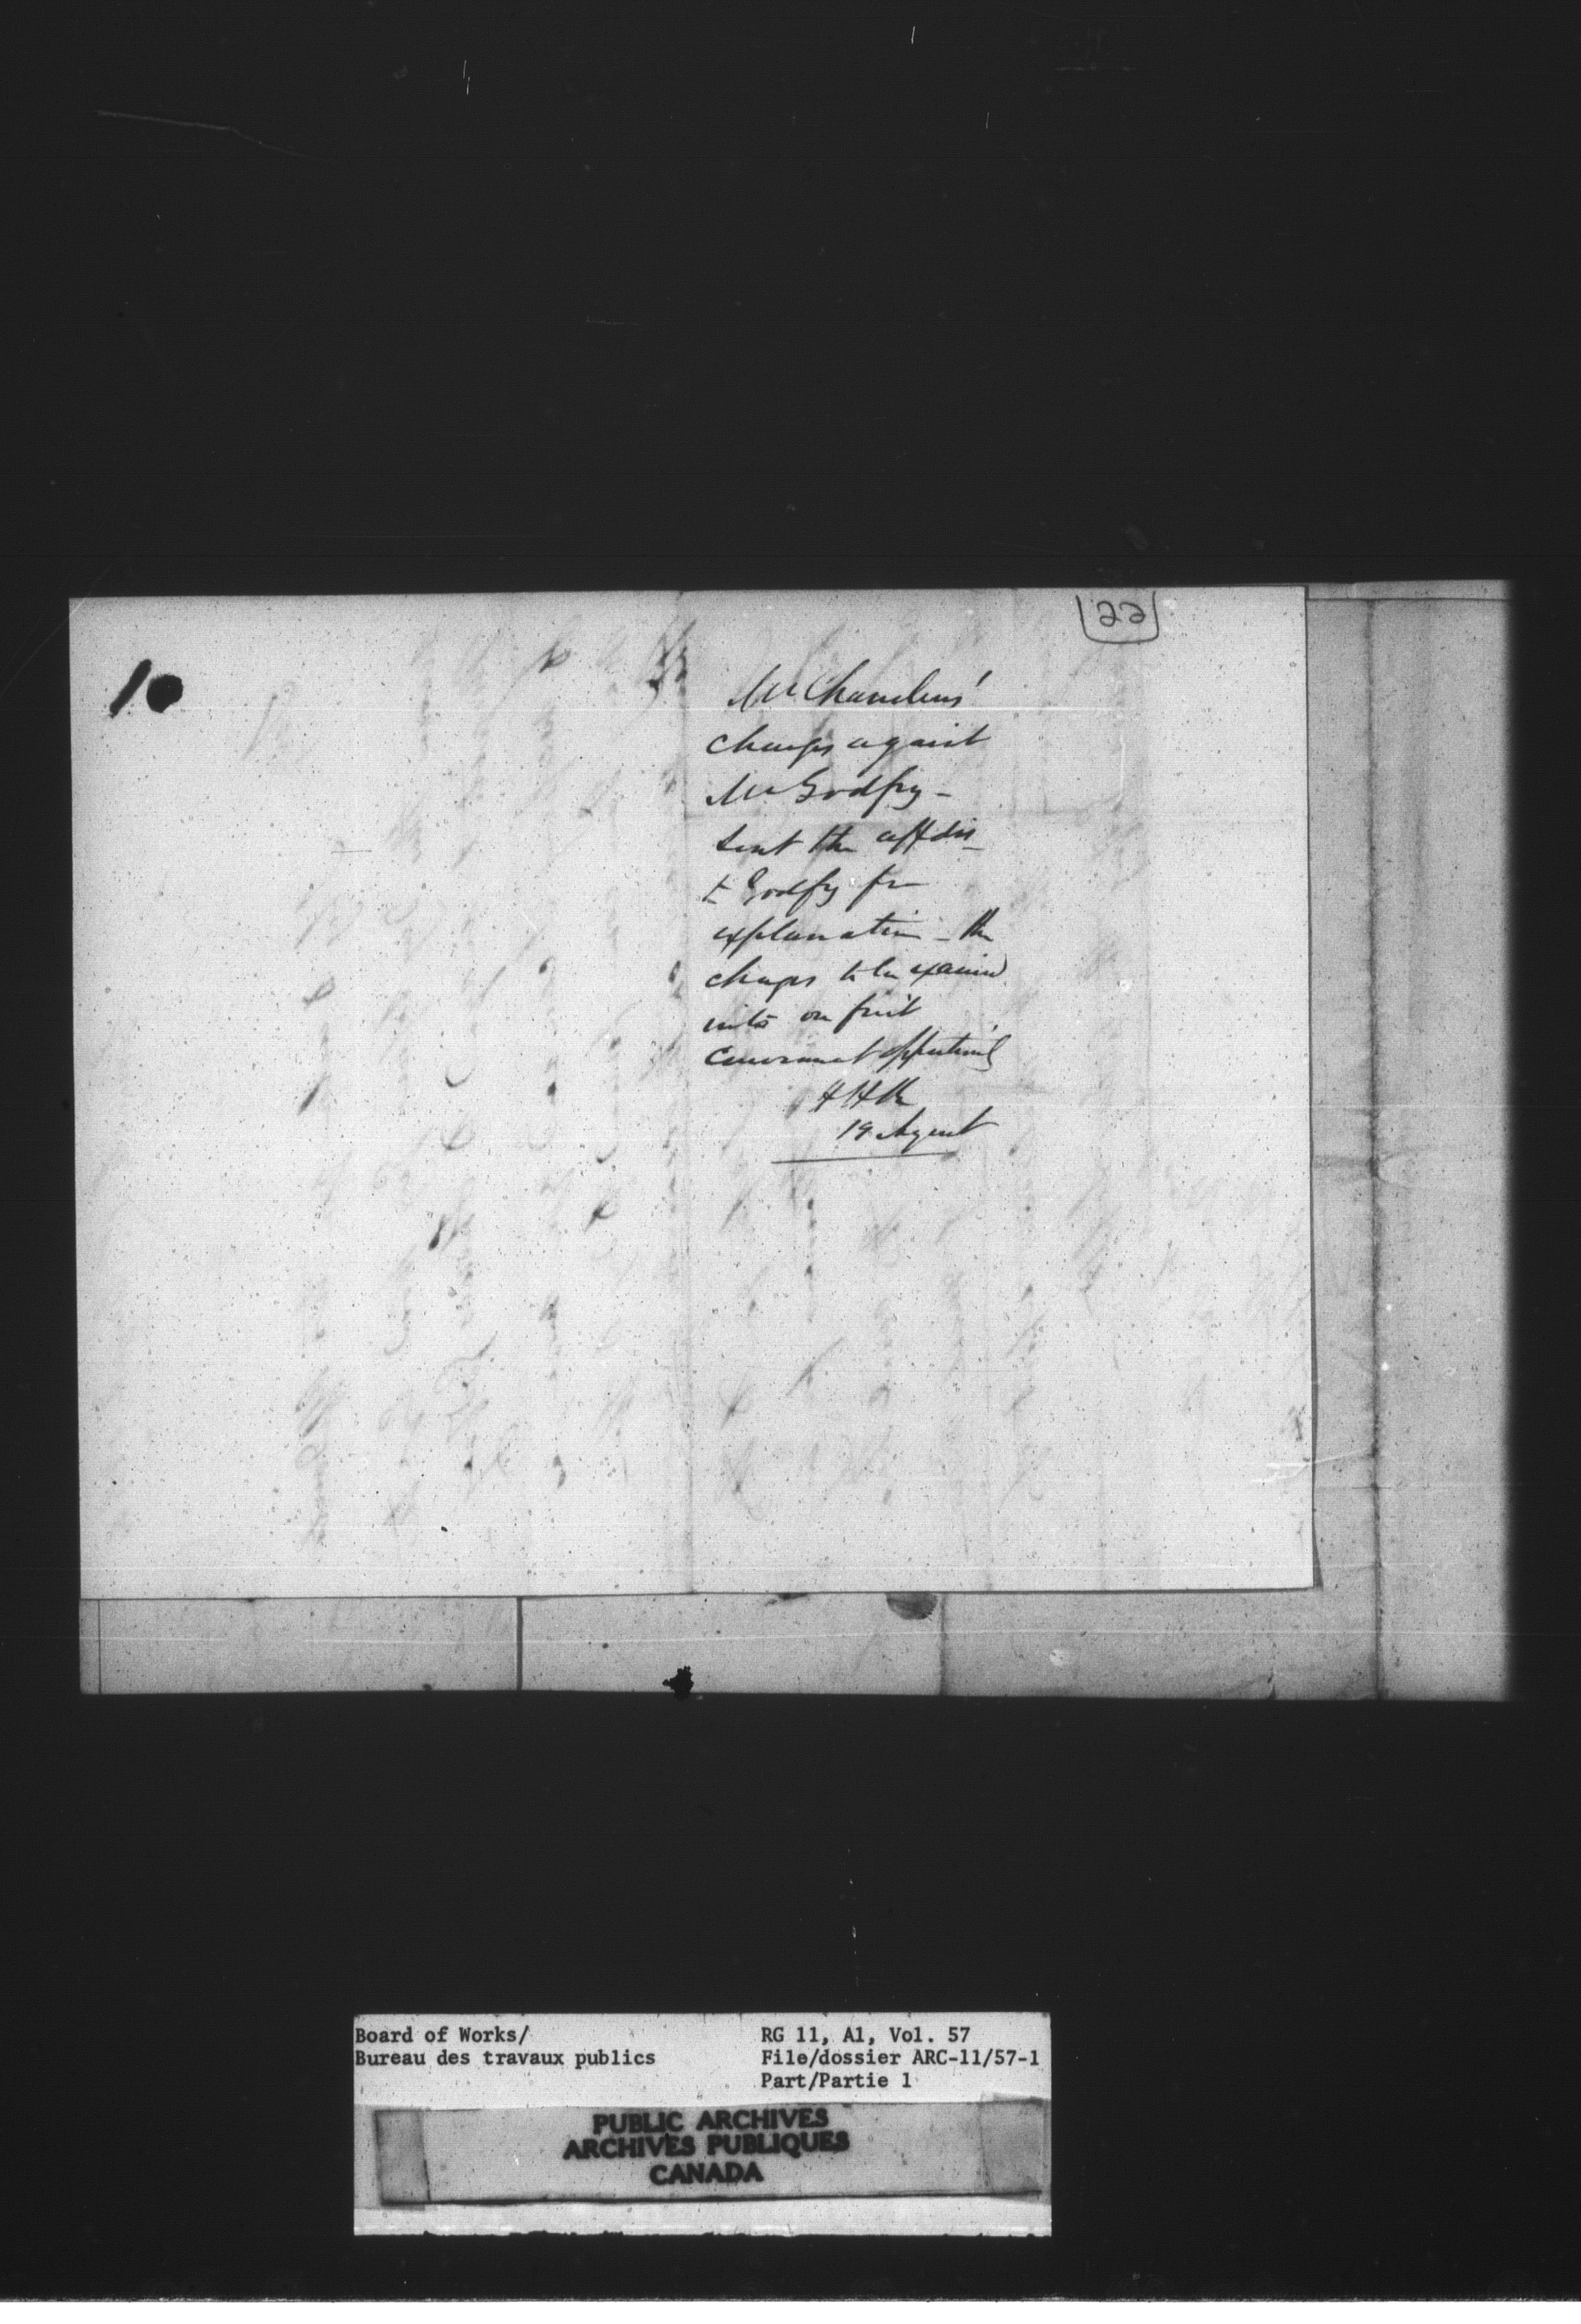 22
10
Mr Chandlers'
charges against
Mr Godfry -
Sent the affdts
to Godfry for
explanation - the
charges to be examined
into on first
convenient opportunity
HHK
19 August
Board of Works/
Bureau des travaux publics
RG 11, A1, Vol. 57
File/dossier ARC-11/57-1
Part/Partie 1
PUBLIC ARCHIVES
ARCHIVES PUBLIQUES
CANADA